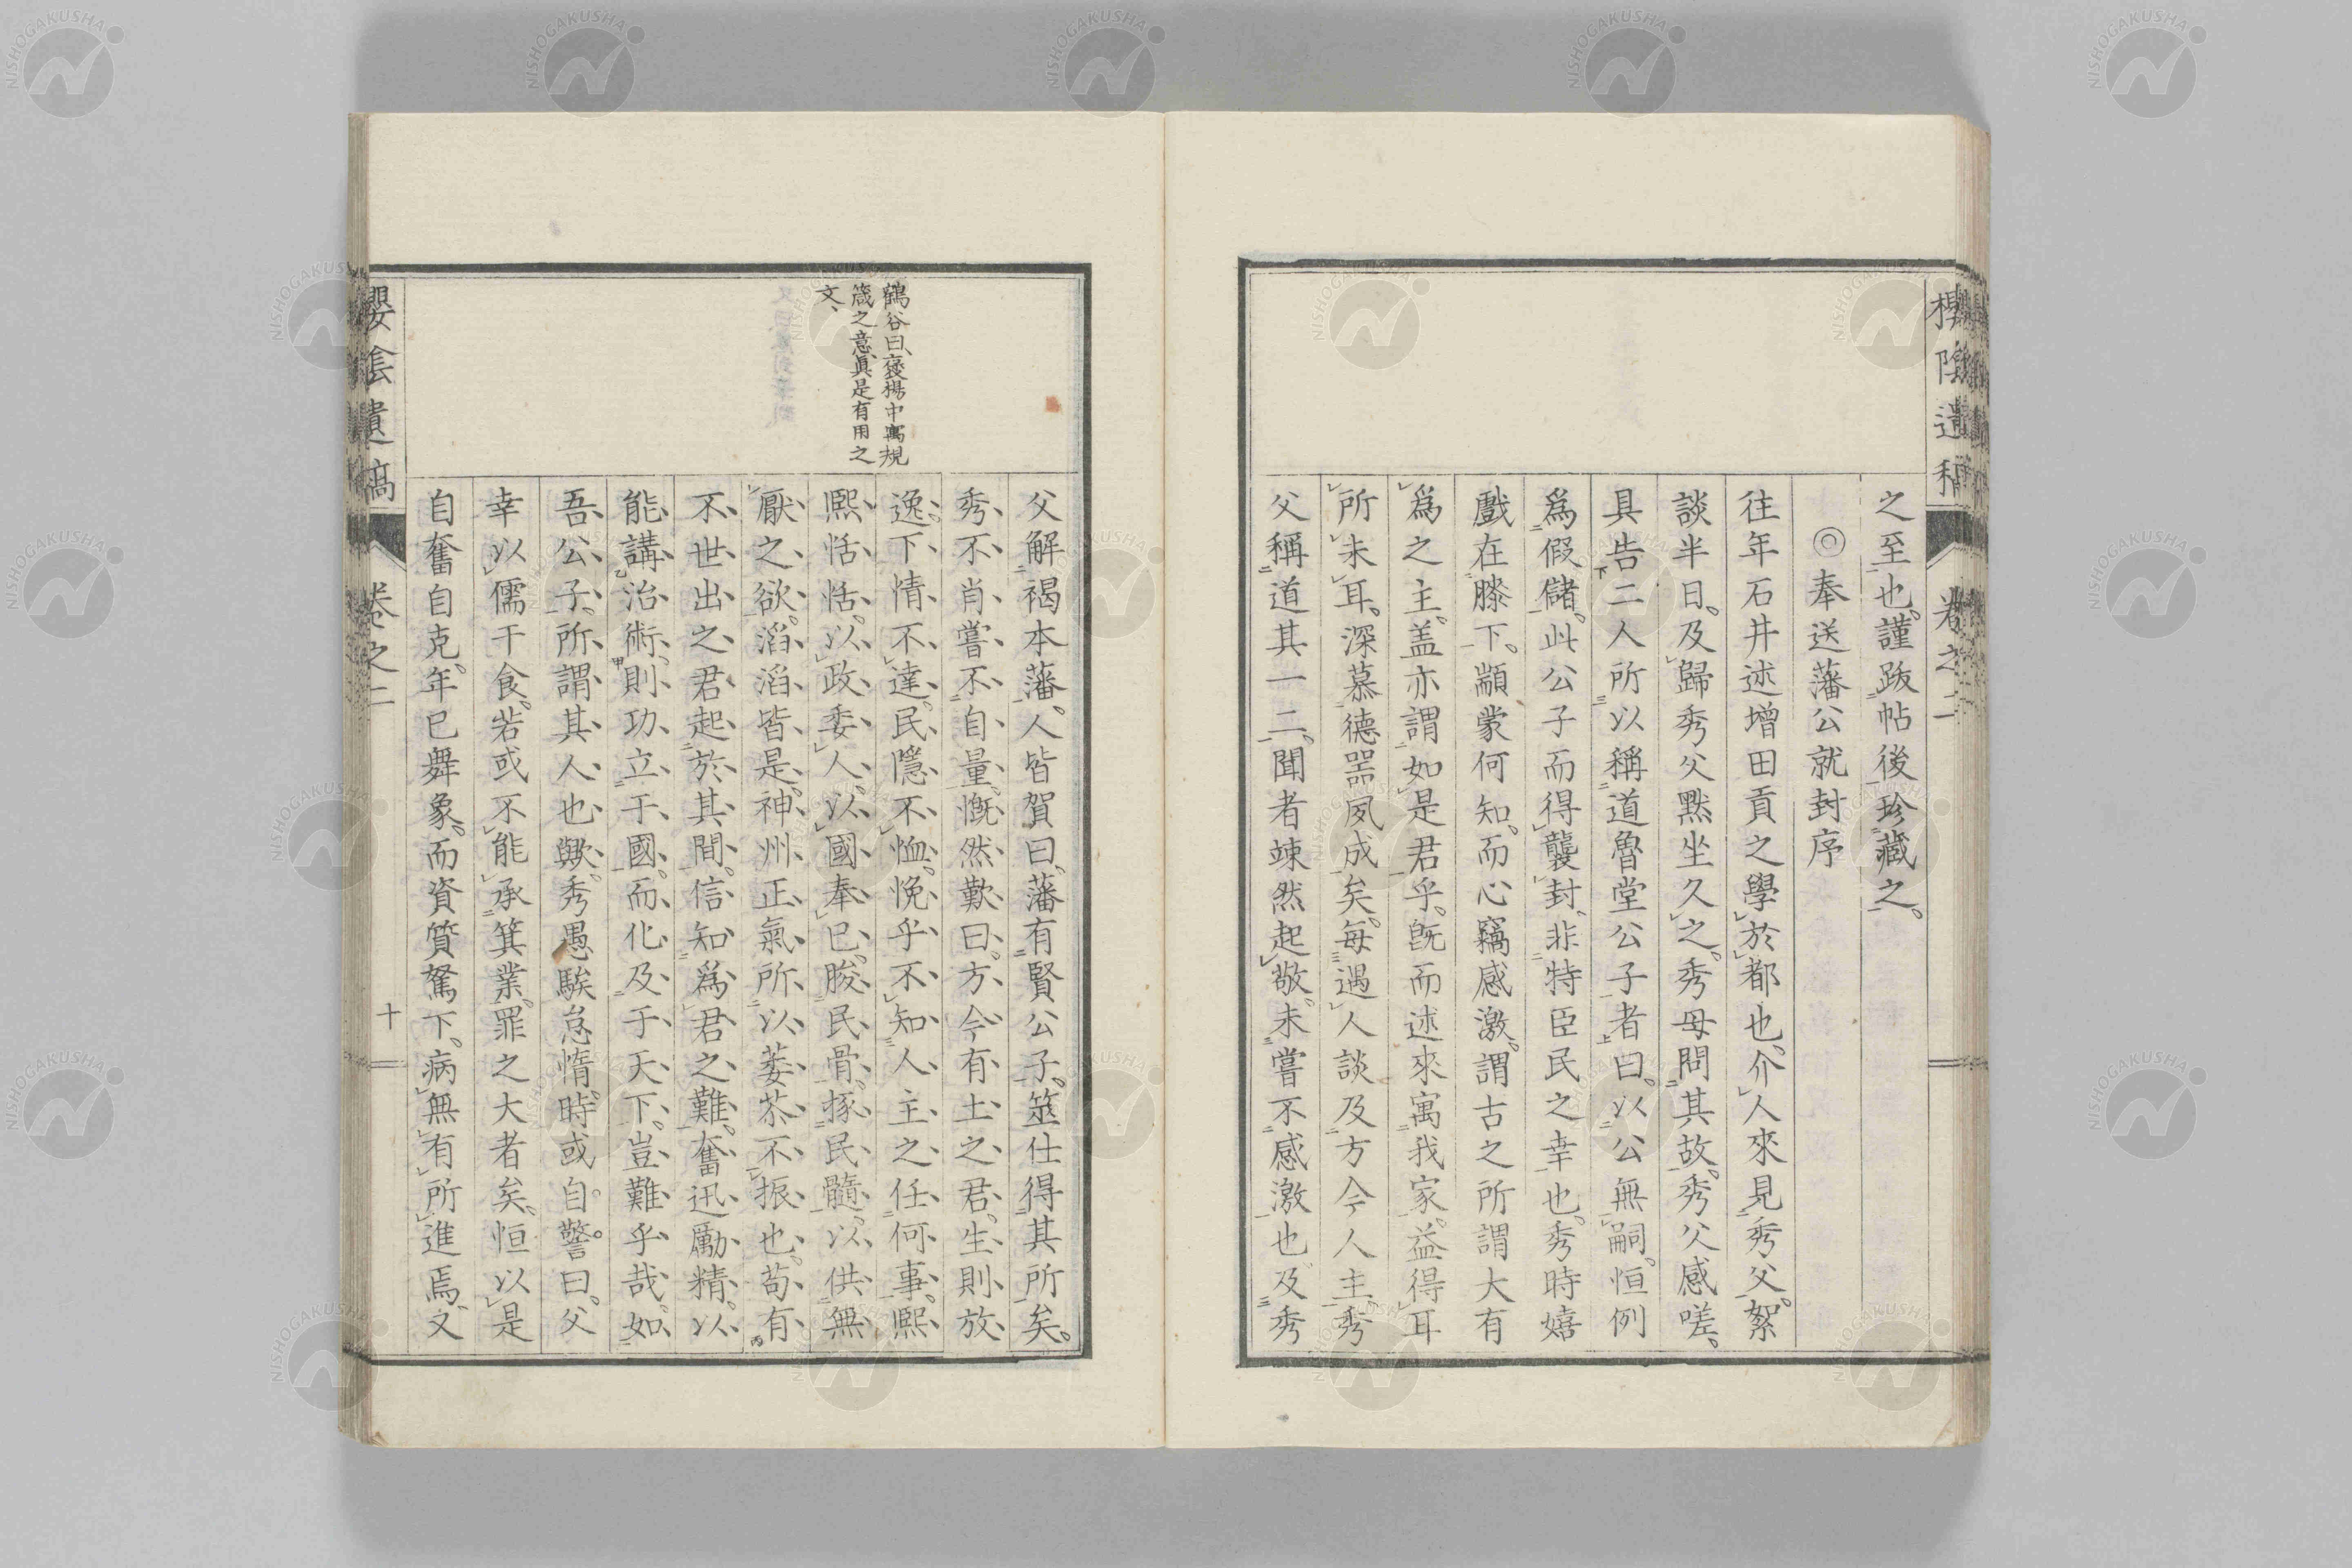 櫻陰遺稿
卷之二
之至也。謹跋帖後、珍藏之。
◎奉送藩公就封序
往年石井述増田貢之學於都也、介人來見秀父。絮
談半日。及歸秀父默坐久之。秀母問其故。秀父感嗟、
具告二人所以稱道魯堂公子者曰。以公無嗣。恒例
爲假儲。此公子而得襲封、非特臣民之幸也。秀時嬉
戲在膝下。顓蒙何知。而心竊感激。謂古之所謂大有
爲之主。盖亦謂如是君乎。旣而述來寓我家。益得耳
所未耳。深慕德噐夙成矣。每遇人談及方今人主。秀
父稱道其一二。聞者竦然起敬。未嘗不感激也。及秀
父解褐本藩、人皆賀曰。藩有賢公子。筮仕得其所矣。
秀不肖嘗不自量。慨然歎曰。方今有土之君。生則放
逸。下情不達。民隱不恤。悗乎不知人主之任何事。熙
熙恬恬。以政委人。以國奉已。朘民骨。掭民髓。以供無
厭之欲。滔滔皆是。神州正氣所以萎苶不振也。苟有
不世出之君起於其間。信知爲君之難。奮迅勵精。以
能講治術、則功立于國。而化及于天下。豈難乎哉。如
吾公子。所謂其人也歟。秀愚騃怠惰。時或自警曰。父
幸以儒干食。若或不能承箕業。罪之大者矣。恒以是
自奮自克。年已舞象。而資質駑下、病無有所進焉、文
鶴谷曰、襃揚中寓規
箴之意眞是有用之
文、
櫻陰遺稿
卷之二
十